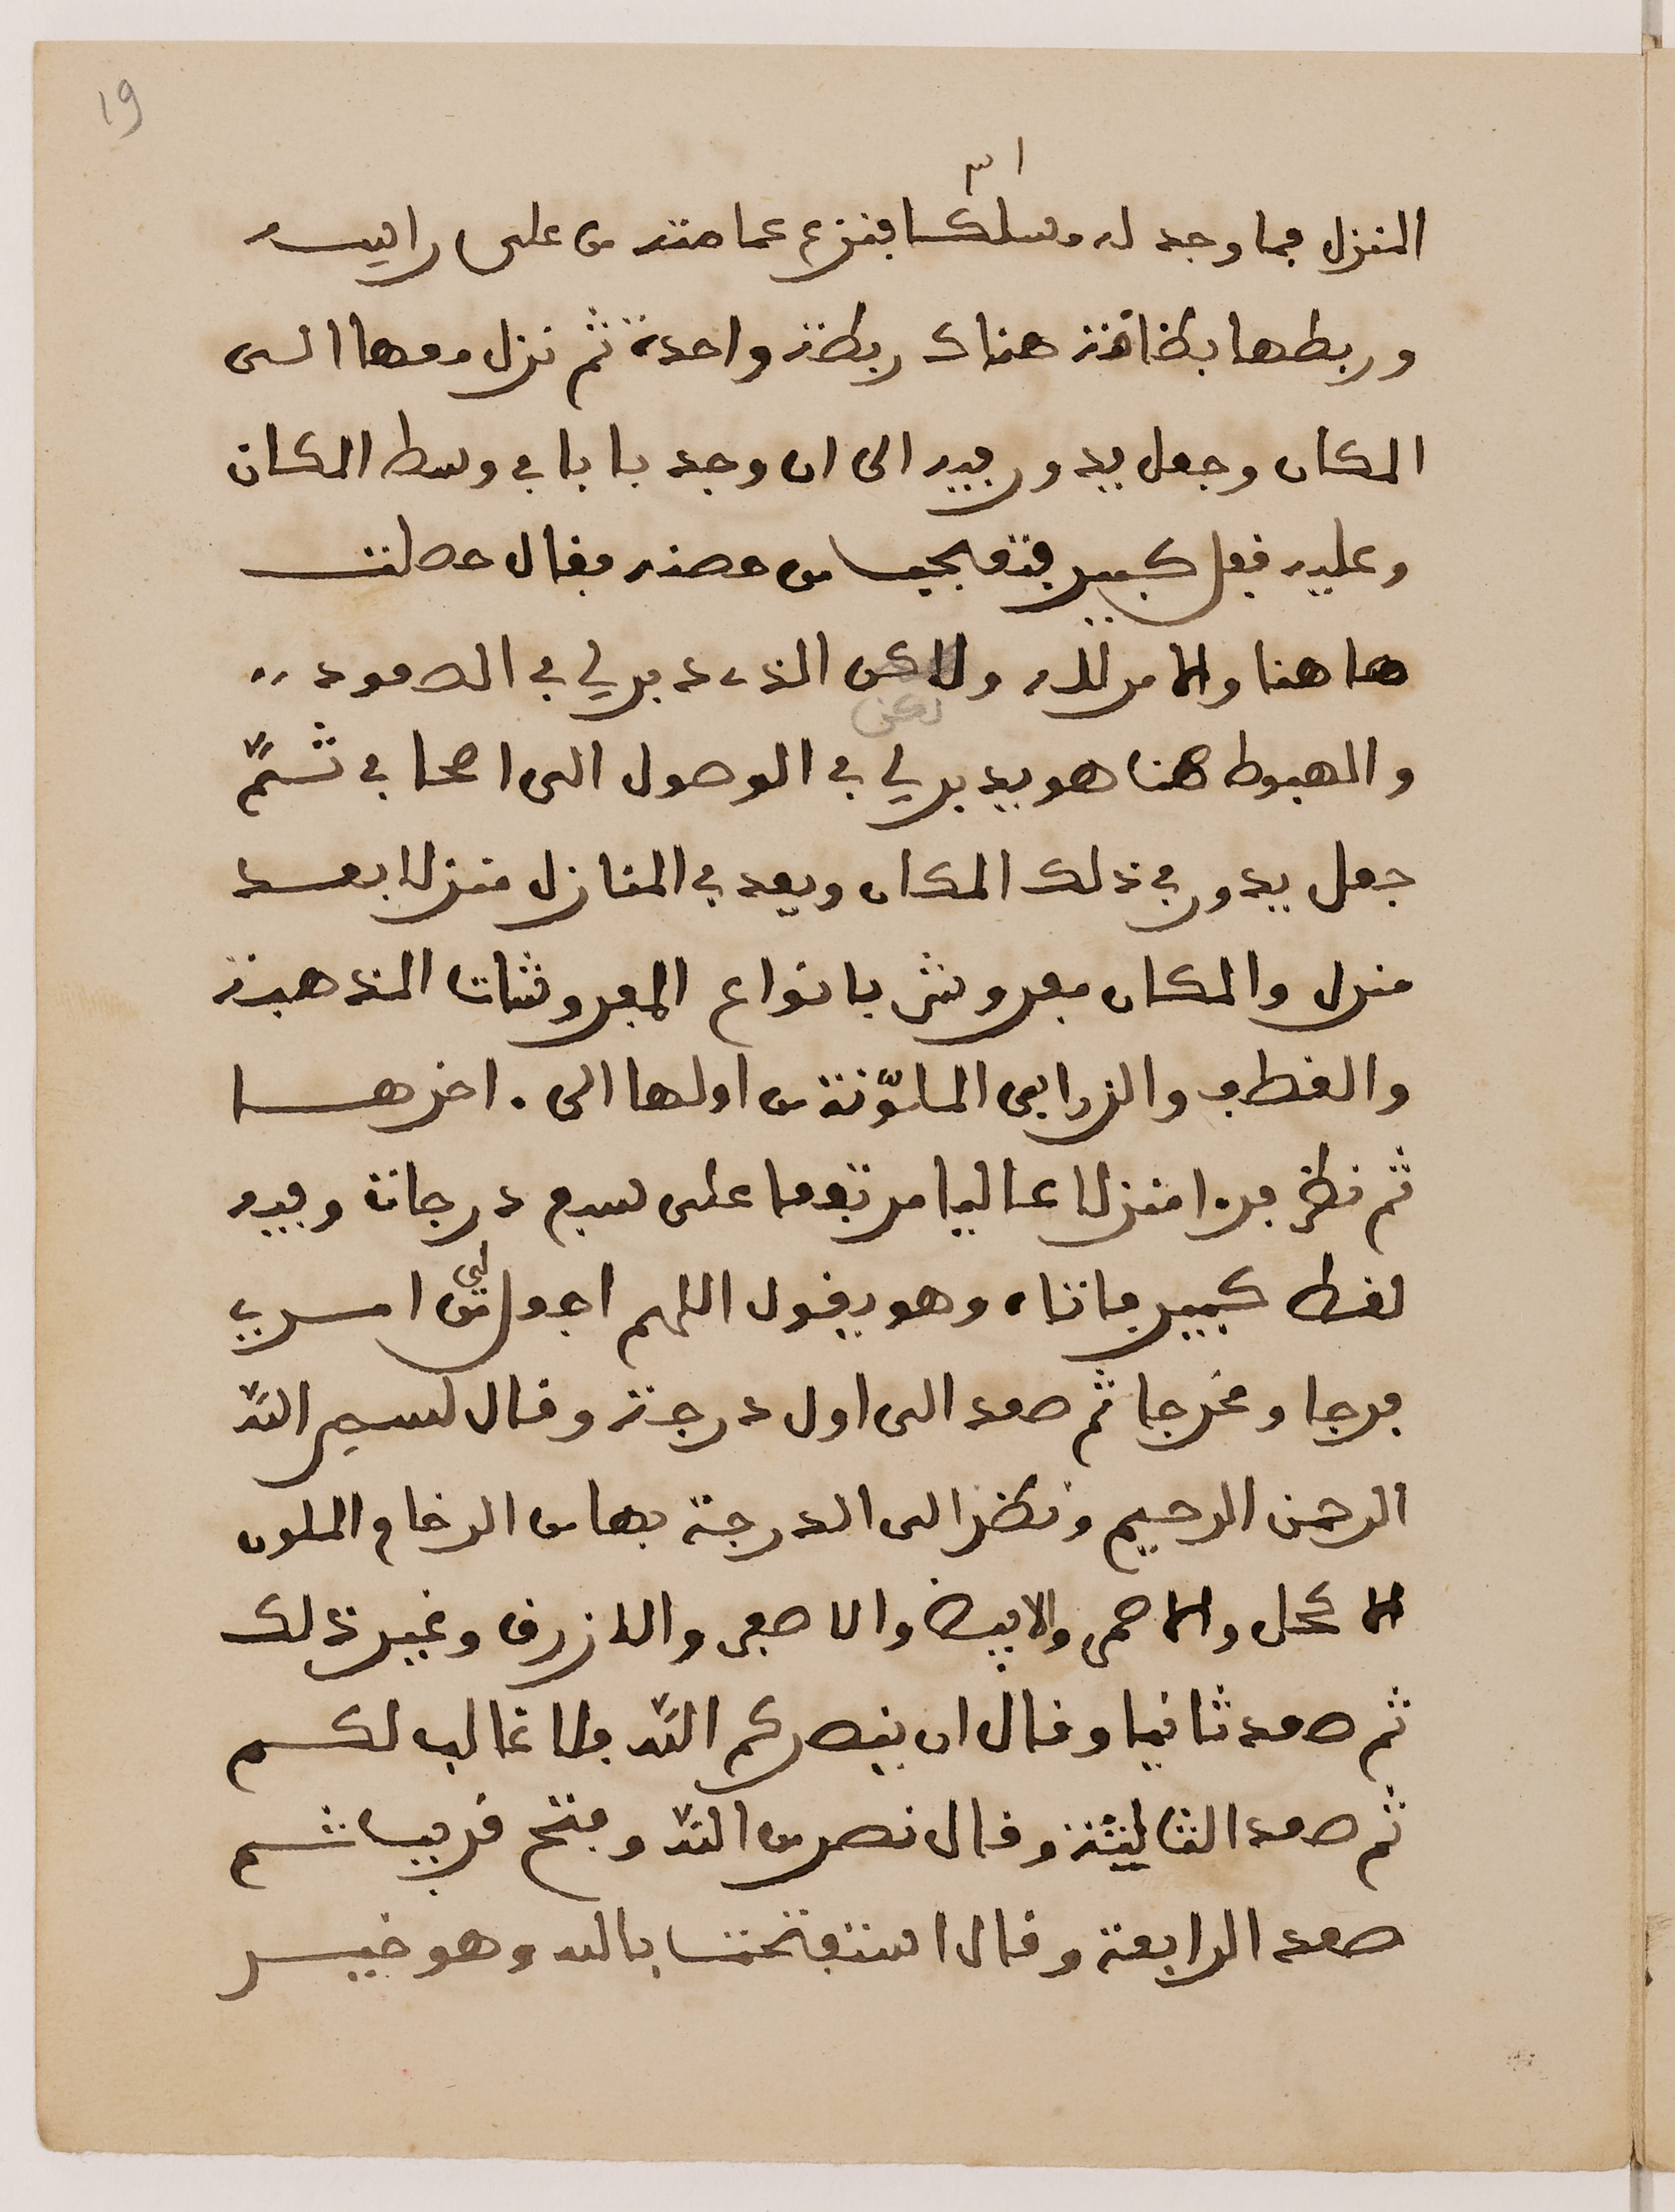 19
المنزل فما وجد له مسلكا فنزع عمامته من على راسه
وربطها بطاقة هناك ربطة واحدة ثم نزل معها الى
المكان وجعل يدور فيه الى ان وجد بابا في وسط المكان
وعليه قفل كبير فتعجب من حصنه فقال حصلت
هاهنا والامر لله ولاكن الذي دبرلي في الصعود
لكن
والهبوط هنا هو يدبرلي في الوصول الى اصحابي ثمّ
جعل يدور في ذلك المكان ويعد في المنازل منزلا بعد
منزل والمكان مفروش بانواع المفروشات المذهبة
والقطف والزرابي الملوّنة من اولها الى اخرها
ثم نظر فرءا منزلا عاليا مرتفعا على سبع درجات وفيه
لغط كبير فاتاه وهو يقول اللهم اجعل لي من امري
فرجا ومخرجا ثم صعد الى اول درجة وقال بسم الله
الرحمن الرحيم ونظر الى الدرجة بها من الرخام الملون
الاكحل والاحمر والابيض والاصفر والازرق وغير ذلك
ثم صعد ثانيا وقال ان ينصركم الله فلا غالب لكم
ثم صعد الثاليثة وقال نصر من الله وفتح قريب ثم
صعد الرابعة وقال استفتحت بالله وهو خير